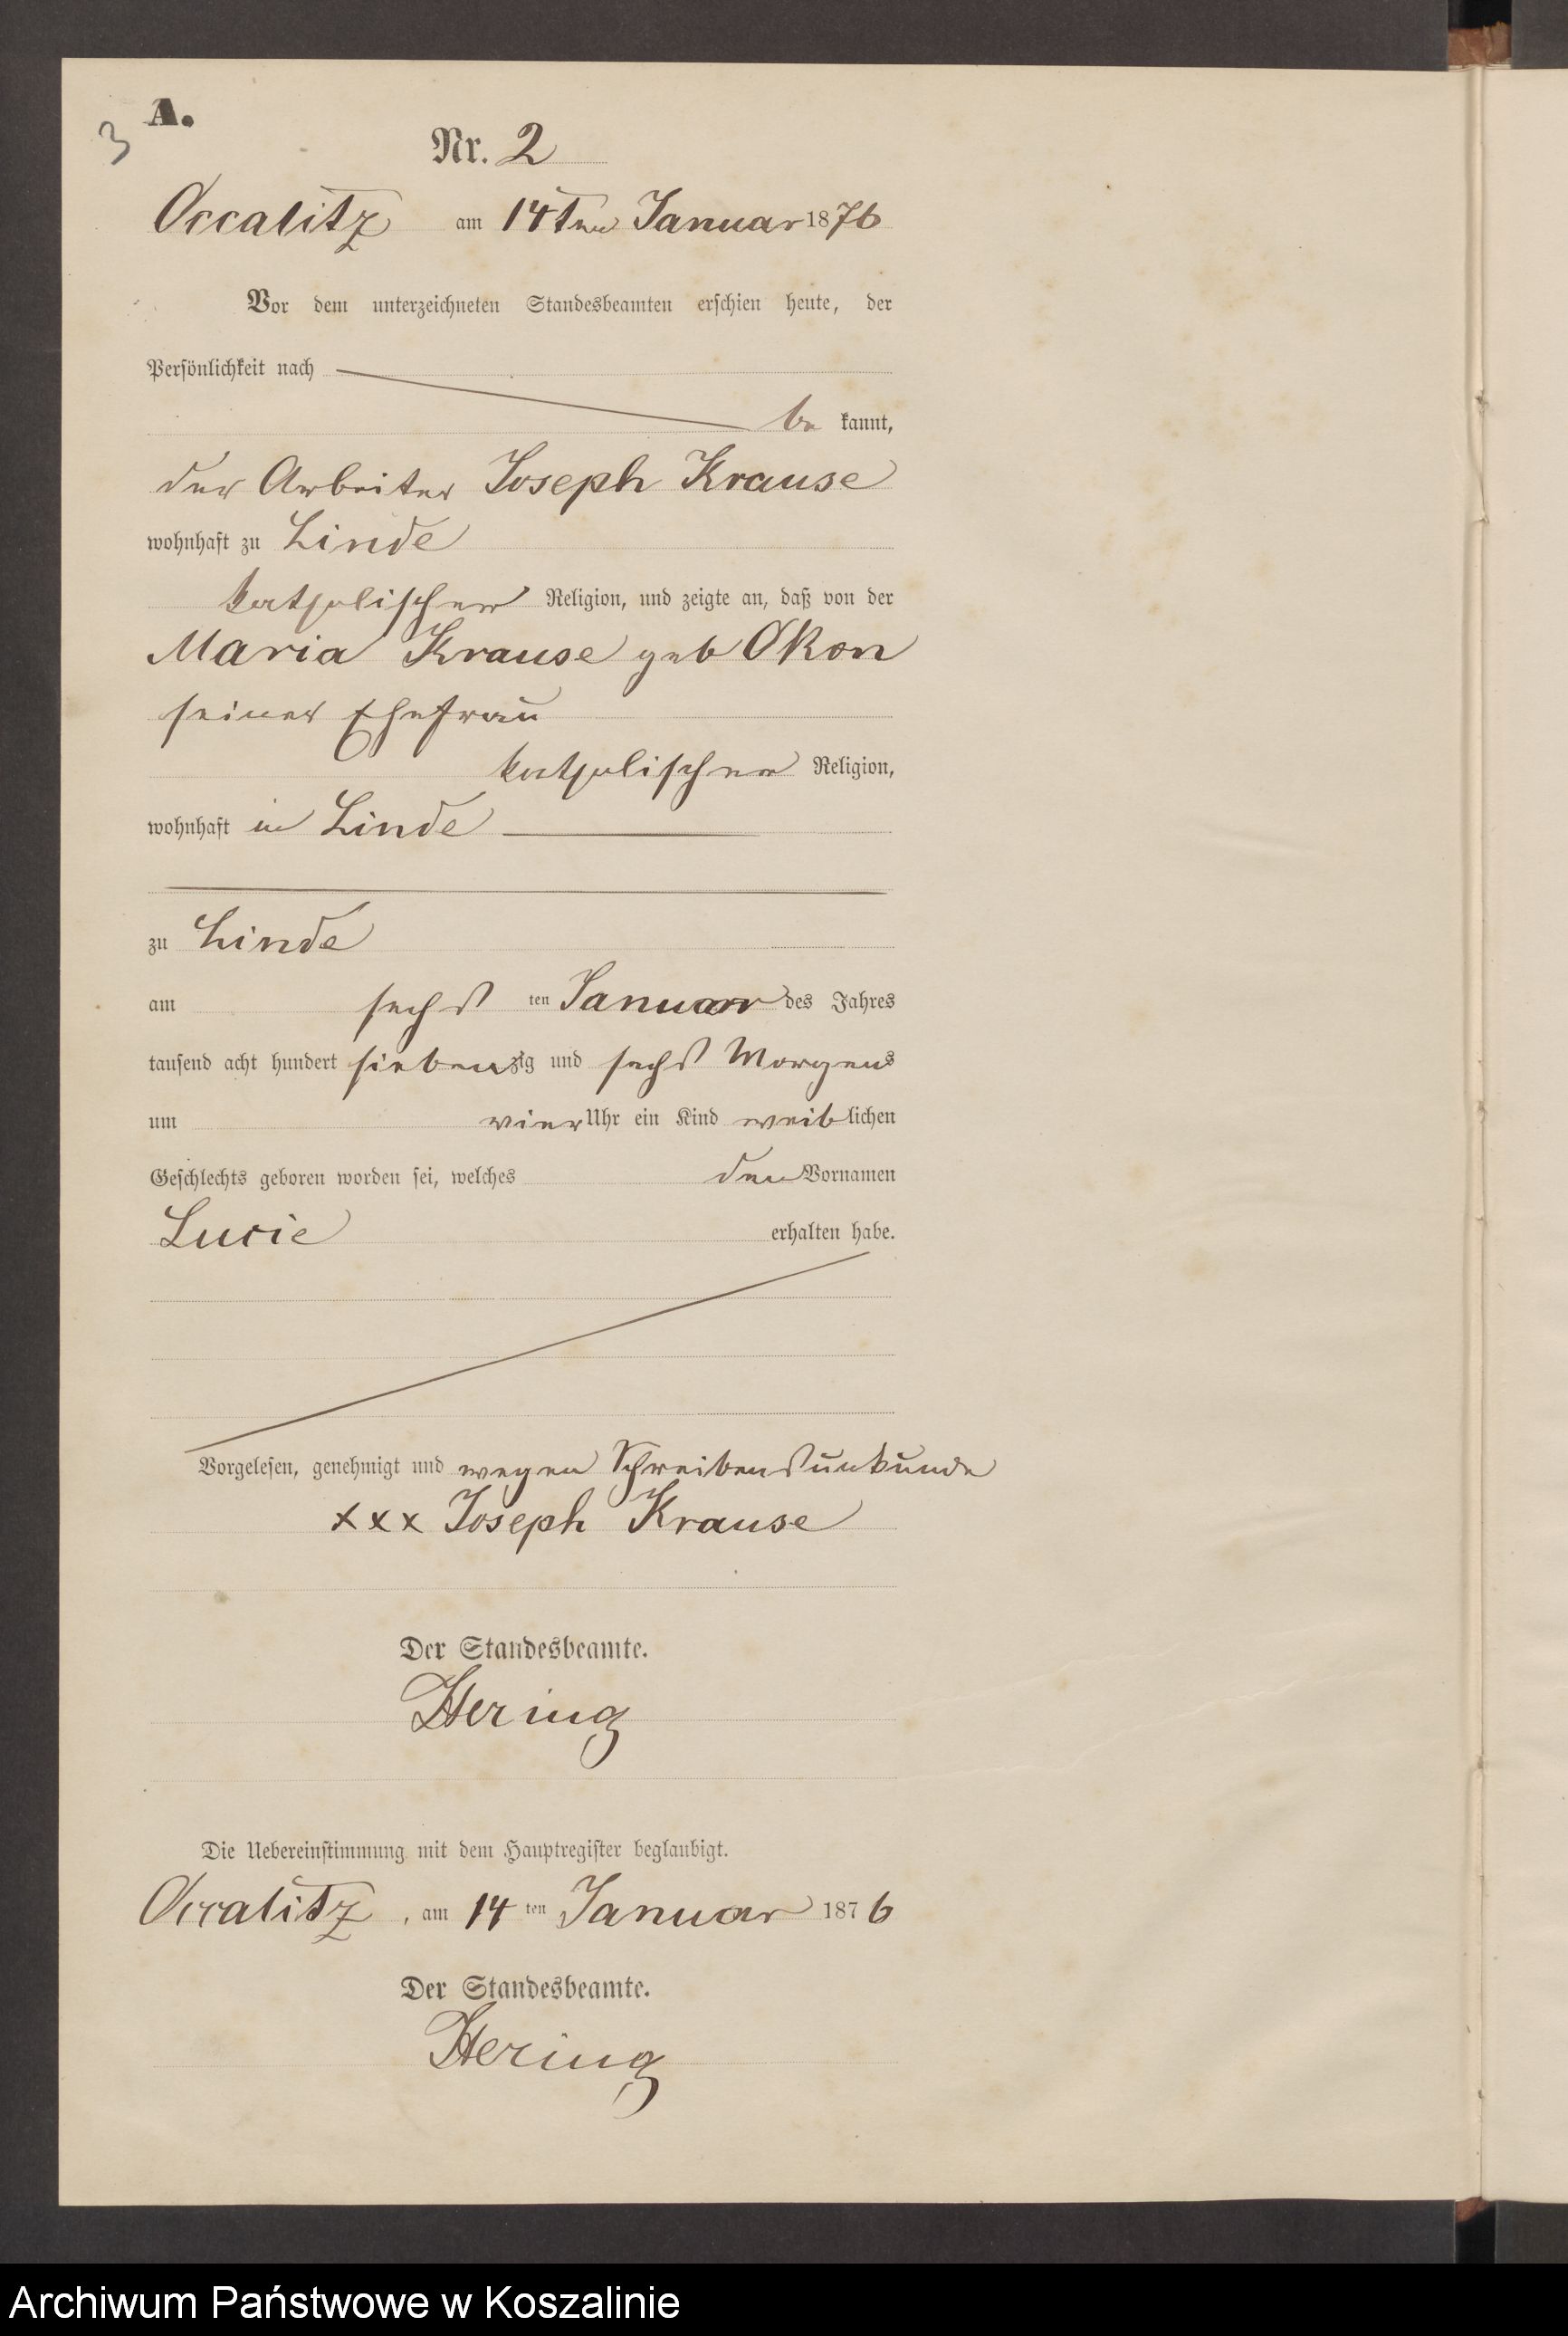 A.
3
Nr. 2
Occalitz am 14ten Januar 1876
Vor dem unterzeichneten Standesbeamten erschien heute, der
Persönlichkeit nach
be kannt,
der Arbeiter Joseph Krause
wohnhaft zu Linde
katholischer Religion, und zeigte an, daß von der
Maria Krause geb Okon
seiner Ehefrau
katholischer Religion,
wohnhaft in Linde
zu Linde
am sechs ten Januar des Jahres
tausend acht hundert siebenzig und sechs Morgens
um vier Uhr ein Kind weiblichen
Geschlechts geboren worden sei, welches den Vornamen
Lucie erhalten habe.
Vorgelesen, genehmigt und wegen Schreibensunkunde
xxx Joseph Krause
Der Standesbeamte.
Hering
Die Uebereinstimmung mit dem Hauptregister beglaubigt.
Occalitz, am 14 ten Januar 1876
Der Standesbeamte.
Hering
Archiwum Państwowe w Koszalinie